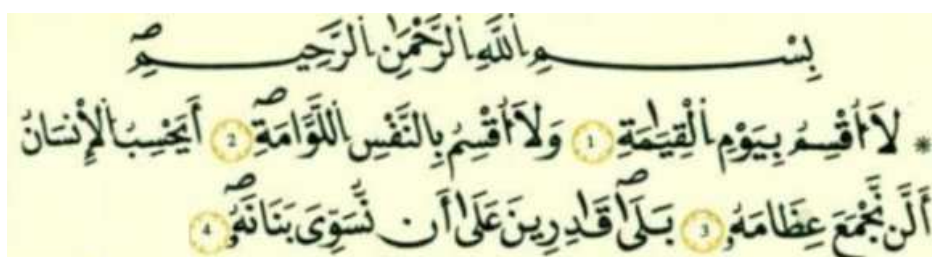 بِسْمِ اللَّهِ الرَّحْمَٰنِ الرَّحِيمِ
* لَا أُقْسِمُ بِيَوْمِ الْقِيَٰمَةِ 1 وَلَا أُقْسِمُ بِالنَّفْسِ اللَّوَّامَةِ 2 أَيَحْسِبُ الْإِنسَانُ
أَلَّن نَّجْمَعَ عِظَامَهُۥ 3 بَلَىٰ قَادِرِينَ عَلَىٰ أَن نُّسَوِّىَ بَنَانَهُۥ 4